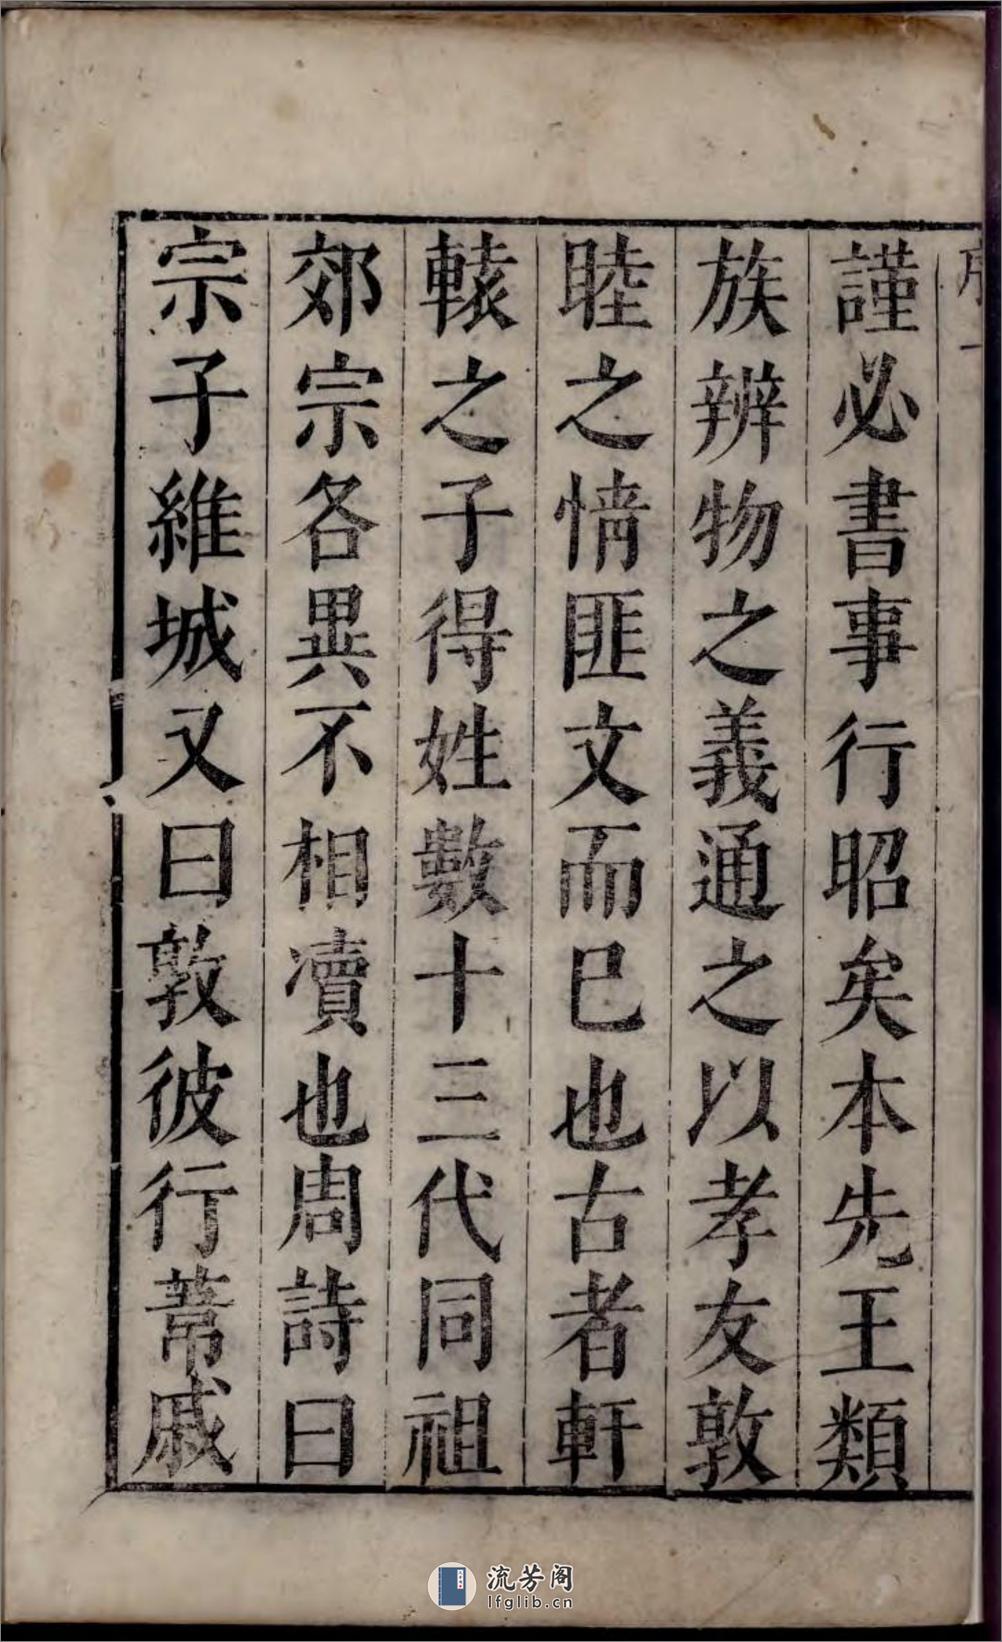 謹必書事行昭矣本先王類
族辨物之義通之以孝友敦
睦之情匪文而已也古者軒
轅之子得姓數十三代同祖
郊宗各異不相瀆也周詩曰
宗子維城又曰敦彼行葦戚
流芳阁
lfglib.cn